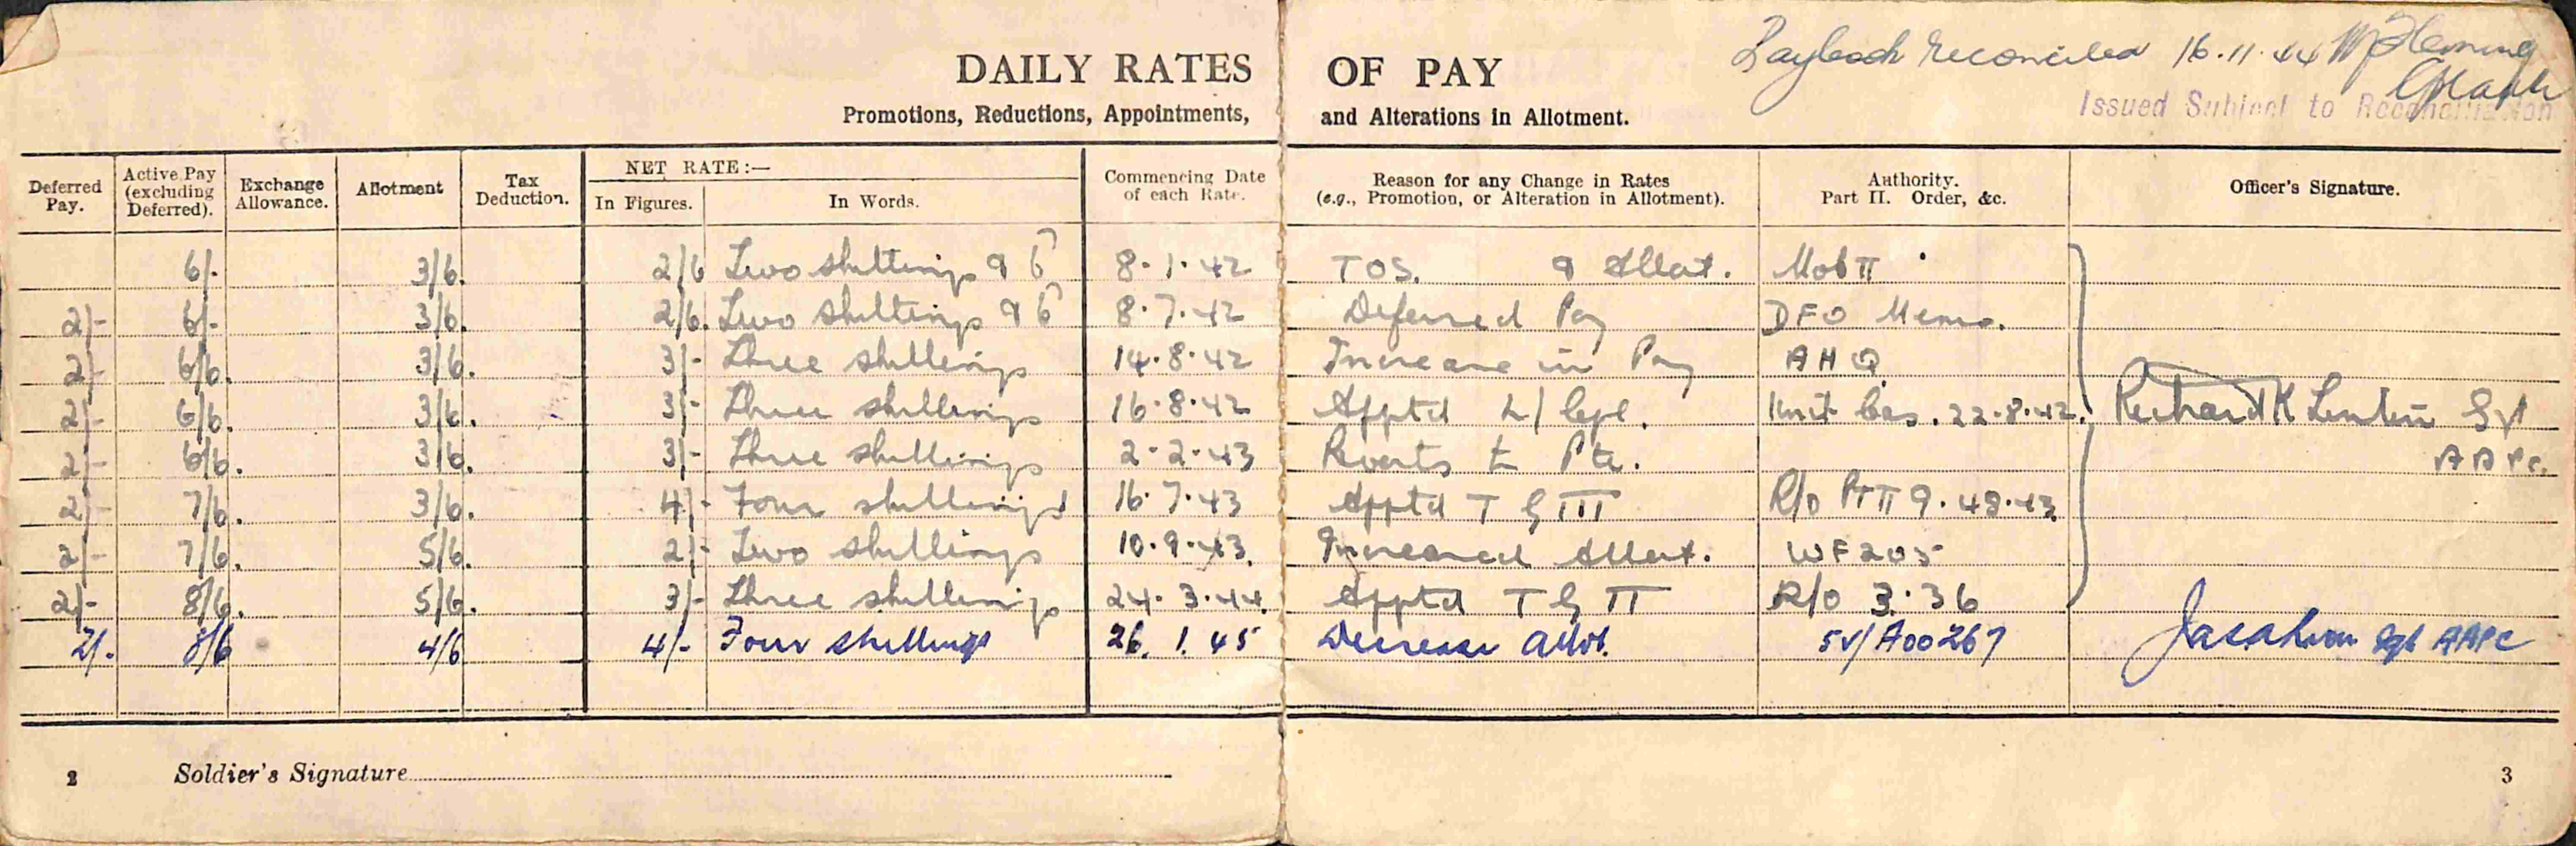 DAILY RATES OF PAY
Paybook reconciled 16.11.44
Issued Subject to Reconciliation
Promotions, Reductions, Appointments, and Alterations in Allotment.
Deferred Pay. Active Pay (excluding Deferred). Exchange Allowance. Allotment Tax Deduction. NET RATE:— In Figures. In Words. Commencing Date of each Rate. Reason for any Change in Rates (e.g., Promotion, or Alteration in Allotment). Authority. Part II. Order, &c. Officer's Signature.
6/- 3/6. 2/6 Two shillings & 6 8.1.42 TOS. & Allot. Mob II
2/- 6/- 3/6. 2/6. Two shillings & 6 8.7.42 Deferred Pay DFO Memo.
2/- 6/6. 3/6. 3/- Three shillings 14.8.42 Increase in Pay AHQ
2/- 6/6. 3/6. 3/- Three shillings 16.8.42 Apptd L/Cpl. Unit Cas. 22.8.42. Richard K Linton Sgt
2/- 6/6. 3/6. 3/- Three shillings 2.2.43 Reverts to Pte. AAPC.
2/- 7/6. 3/6. 4/- Four shillings 16.7.43 Apptd T G III R/O Pt II 9.48.43
2/- 7/6. 5/6. 2/- Two shillings 10.9.43. Increased Allot. WF205
2/- 8/6. 5/6. 3/- Three shillings 24.3.44. Apptd T G II R/O 3.36
2/- 8/6 4/6 4/- Four shillings 26.1.45 Decrease allot. SV/A00267 Sgt AAPC
2 Soldier's Signature
3